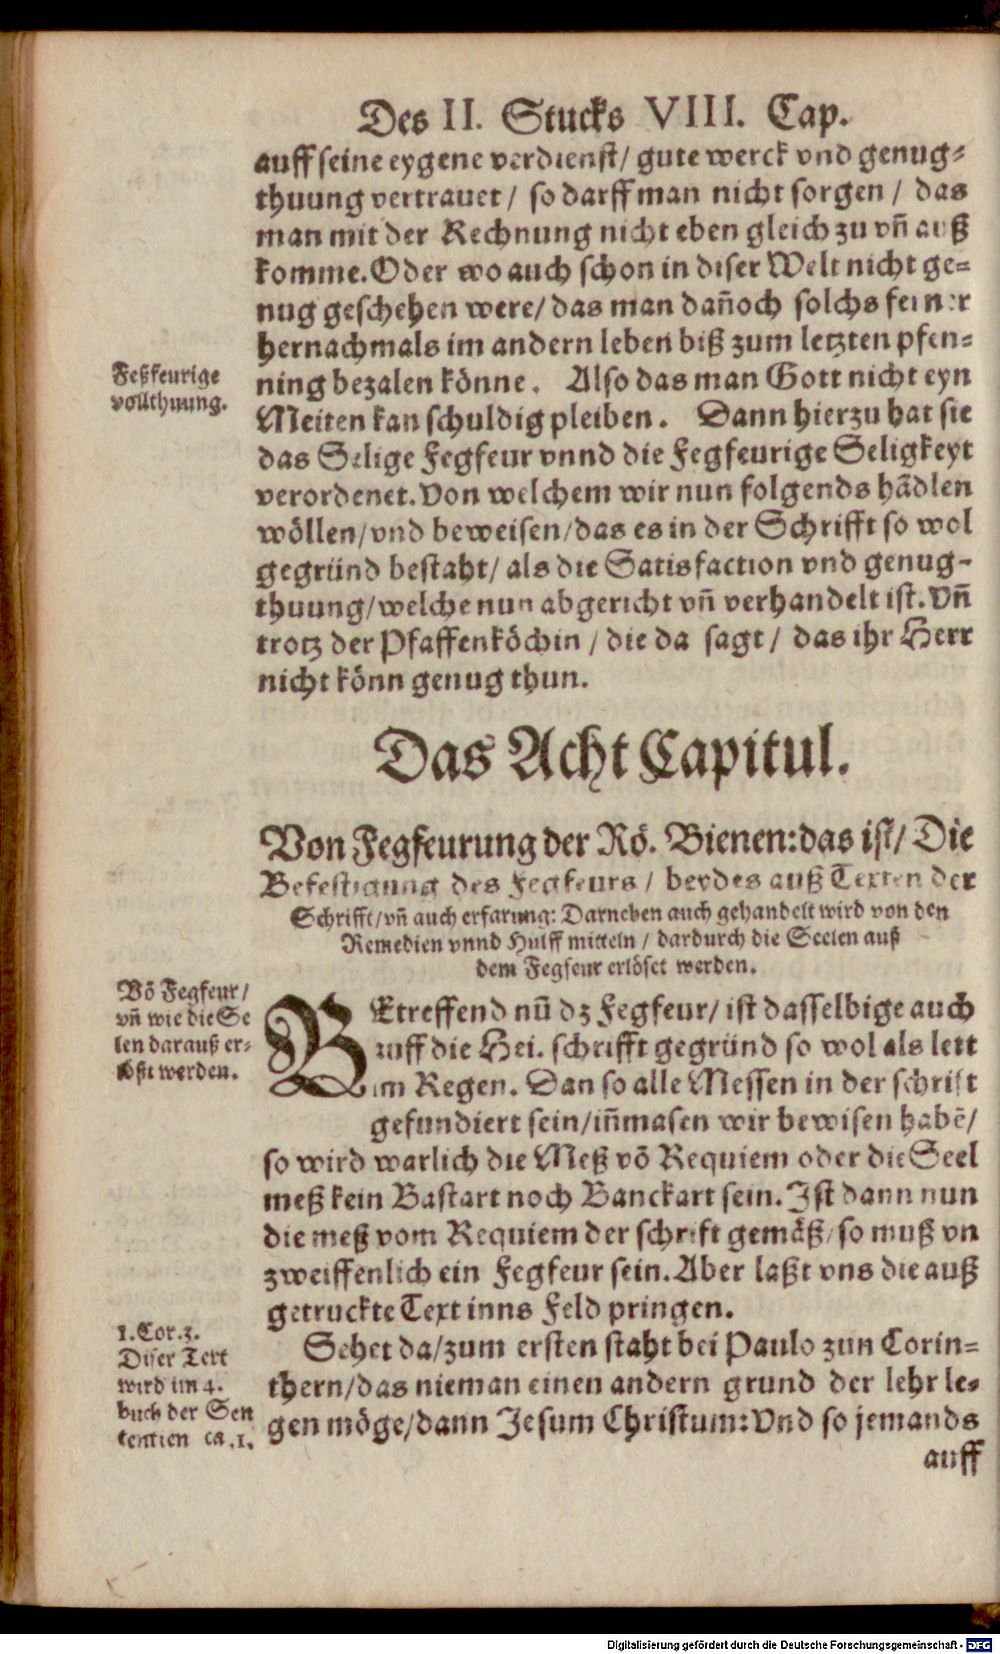 Des II. Stucks VIII. Cap.
auff seine eygene verdienst/ gute werck vnd genug-
thuung vertrauet / so darff man nicht sorgen / das
man mit der Rechnung nicht eben gleich zu vñ auß
komme. Oder wo auch schon in diser Welt nicht ge-
nug geschehen were/ das man dañoch solchs ferner
hernachmals im andern leben biß zum letzten pfen-
ning bezalen könne. Also das man Gott nicht eyn
Meiten kan schuldig pleiben. Dann hierzu hat sie
das Selige Fegfeur vnnd die Fegfeurige Seligkeyt
verordenet. Von welchem wir nun folgends hãdlen
wöllen/ vnd beweisen/ das es in der Schrifft so wol
gegründ bestaht/ als die Satisfaction vnd genug-
thuung/ welche nun abgericht vñ verhandelt ist. Vñ
trotz der Pfaffenköchin / die da sagt / das ihr Herr
nicht könn genug thun.
Feßfeurige
vollthuung.
Das Acht Capitul.
Von Fegfeurung der Rö. Bienen: das ist/ Die
Befestigung des Fegfeurs / beydes auß Texten der
Schrifft/ vñ auch erfarung: Darneben auch gehandelt wird von den
Remedien vnnd Hülff mitteln / dardurch die Seelen auß
dem Fegfeur erlöset werden.
Võ Fegfeur/
vñ wie die See
len darauß er-
löst werden.
BEtreffend nũ dz Fegfeur/ ist dasselbige auch
auff die Hei. schrifft gegründ so wol als lett
im Regen. Dan so alle Messen in der schrift
gefundiert sein/ iñmasen wir bewisen habẽ/
so wird warlich die Meß võ Requiem oder die Seel
meß kein Bastart noch Banckart sein. Ist dann nun
die meß vom Requiem der schrift gemäß/ so muß vn
zweiffenlich ein Fegfeur sein. Aber laßt vns die auß
getruckte Text inns Feld pringen.
Sehet da/ zum ersten staht bei Paulo zun Corin-
thern/ das nieman einen andern grund der lehr le-
gen möge/ dann Jesum Christum: Vnd so jemands
auff
1. Cor. 3.
Diser Text
wird im 4.
buch der Sen
tentien ca. 1.
Digitalisierung gefördert durch die Deutsche Forschungsgemeinschaft - DFG